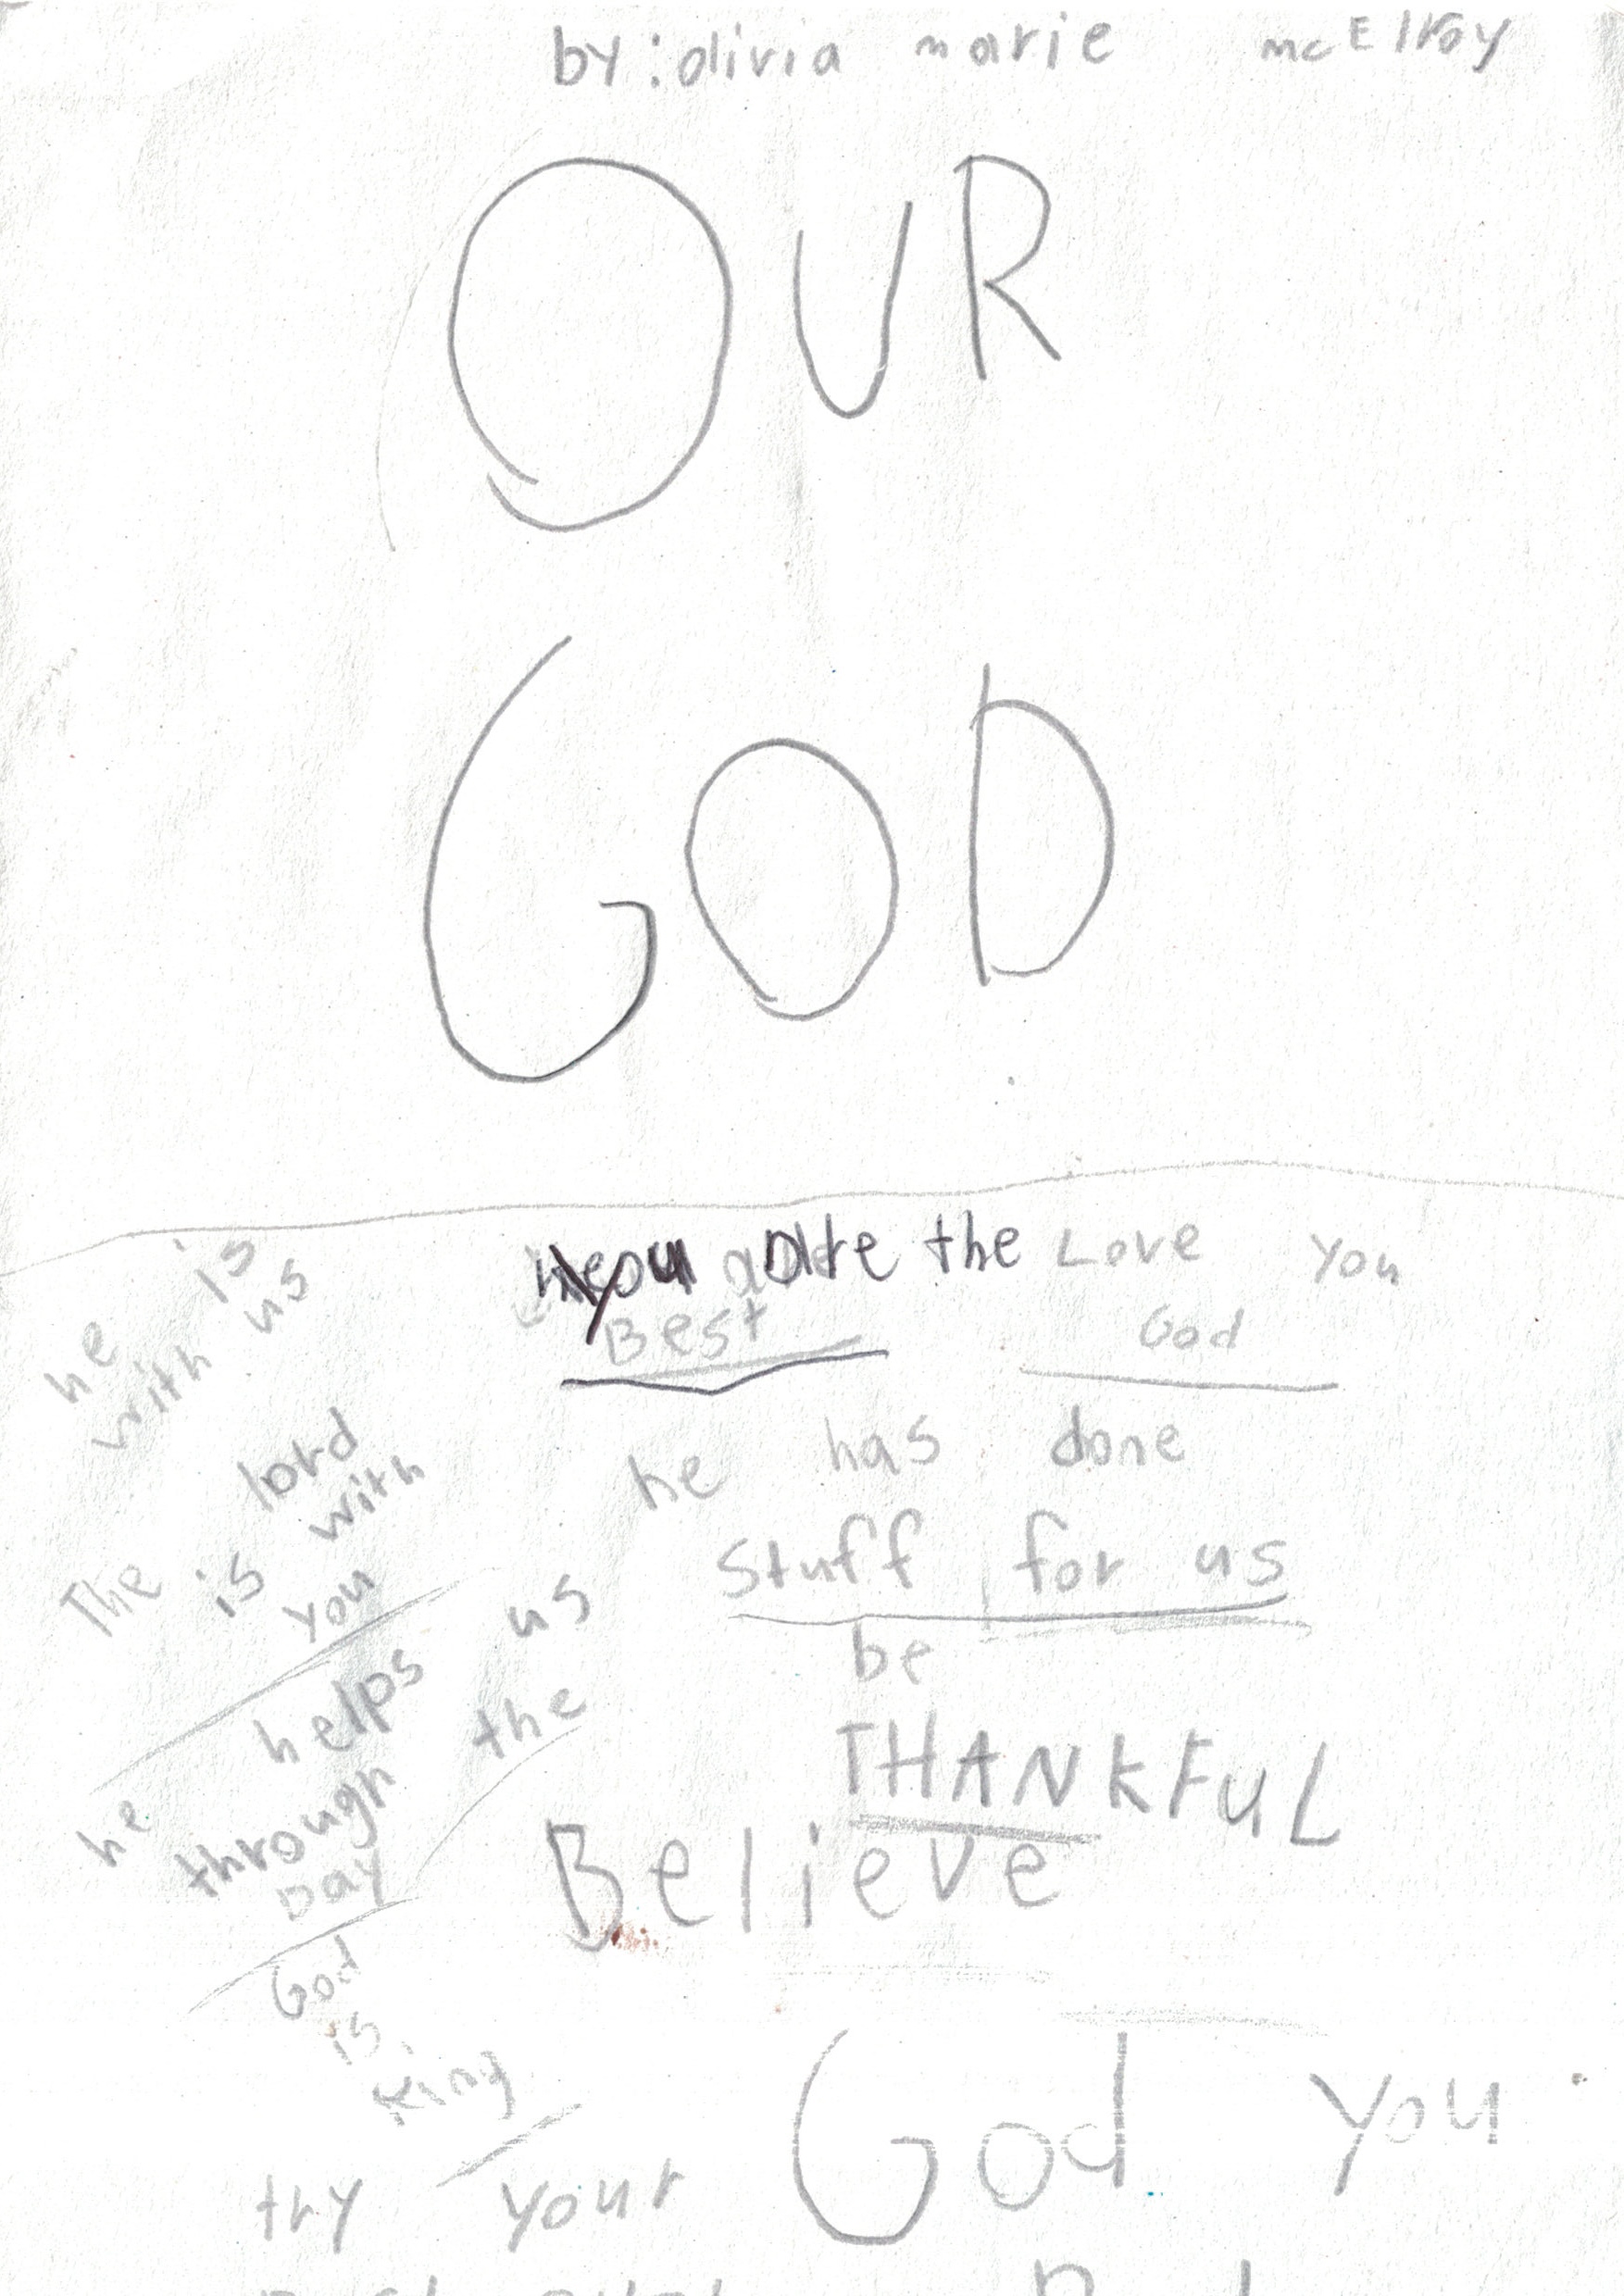 by: olivia marie mcElroy
OUR
GOD
you are the
Best
Love you
God
he has done
Stuff for us
be
THANKFUL
Believe
he is
with us
The lord
is with
you
he helps us
through the
Day
God
is
King
God you
try your